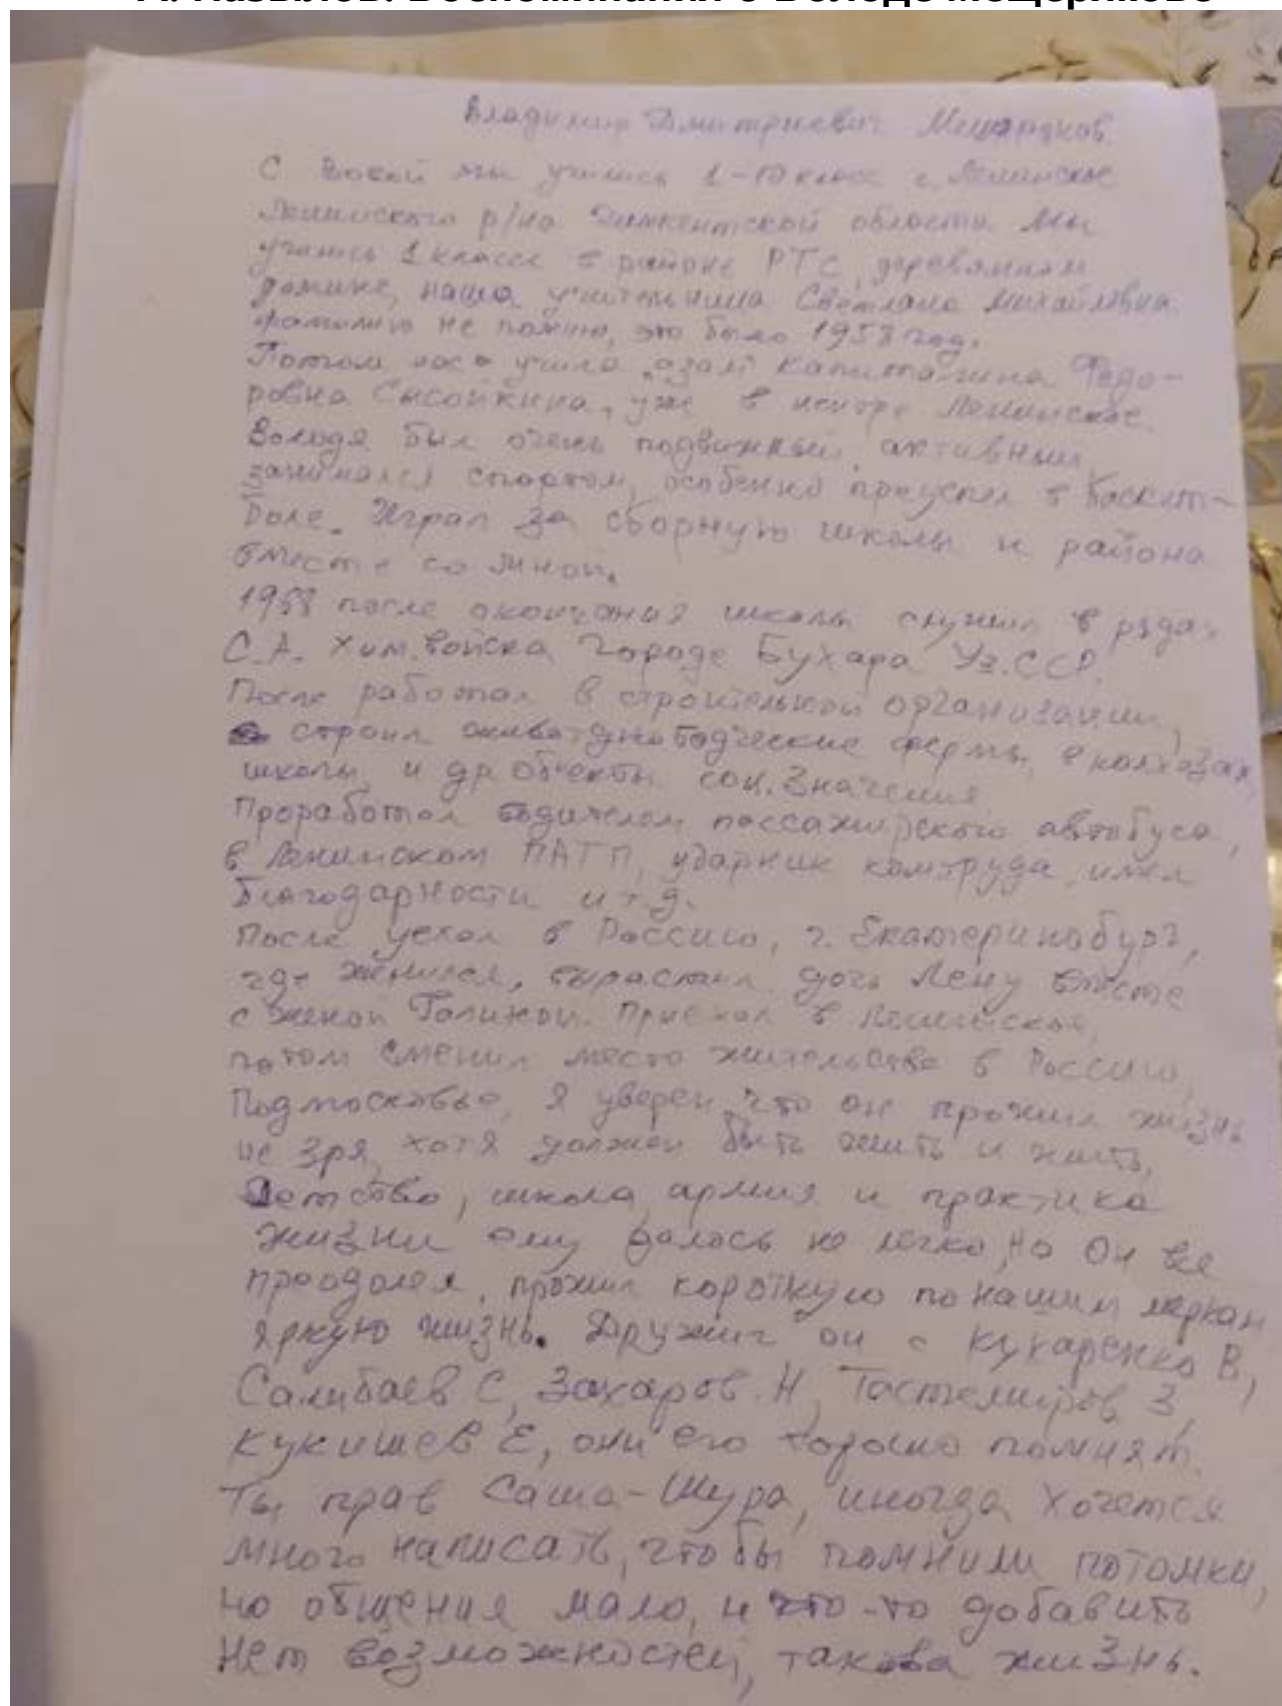 Владимир Дмитриевич Мещеряков.
С Вовой мы учились 1-10 класс с. Ленинское
Ленинского р/на Чимкентской области. Мы
учились 1 класс в районе РТС, деревянном
домике, наша учительница Светлана Михайловна
фамилию не помню, это было 1958 год.
Потом нас учила Капиталина Федо-
ровна Сысойкина, уже в центре Ленинское.
Володя был очень подвижный, активный,
занимался спортом, особенно преуспел в баскет-
боле. Играл за сборную школы и района
вместе со мной.
1968 после окончания школы служил в рядах
С.А. Хим.войска городе Бухара Уз.ССР.
После работал в строительной организации,
строил животноводческие фермы, в колхозах,
школы, и др. объекты соц. значения
Проработал водителем пассажирского автобуса,
в Ленинском ПАТП, ударник комтруда, имел
благодарности и т.д.
После уехал в Россию, г. Екатеринобург,
где женился, вырастил дочь Лену вместе
с женой Галиной. Приехал в Ленинское,
потом сменил место жительства в Россию,
Подмосковье, Я уверен, что он прожил жизнь
не зря, хотя должен быть жить и жить,
Детство, школа, армия и практика
жизни ему далось не легко, но Он все
преодолел, прожил короткую по нашим меркам
яркую жизнь. Дружил он с Кухаренко В,
Салибаев С, Захаров Н, Тастемиров З,
Кукишев Е, они его хорошо помнят.
Ты прав Саша-Шура, иногда хочется
много написать, чтобы помнили потомки,
но общения мало, и что-то добавить
нет возможностей, такова жизнь.